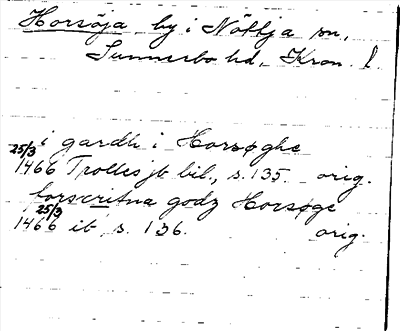 Horsöja by i Nöttja sn,
Sunnerbo hd, Kron. l.
i gardh i Horsøghe
25/3 1466 Trolles jb bil., s. 135. orig.
forscritna godz Horsøge
25/3 1466 ib, s. 136. orig.